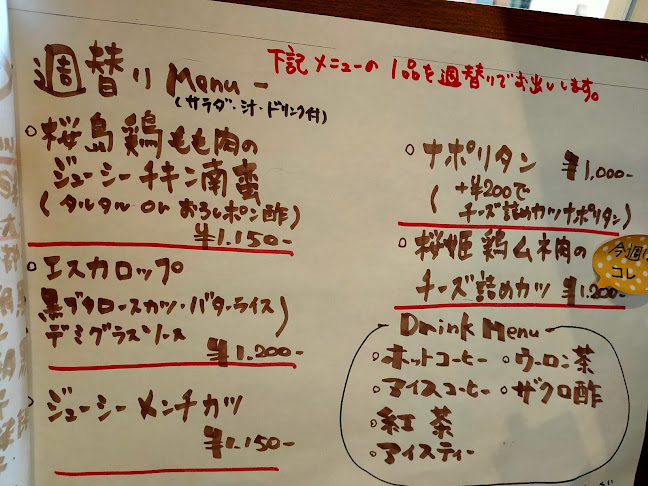 週替りMenu-
(サラダ・汁・ドリンク付)
下記メニューの1品を週替りでお出しします。
○桜島鶏もも肉の
ジューシーチキン南蛮
(タルタル or おろしポン酢)
¥1.150-
○エスカロップ
黒ブタロースカツ・バターライス)
デミグラスソース ¥1.200-
○ジューシーメンチカツ
¥1.150-
○ナポリタン ¥1,000-
(+¥200で
チーズ詰めカツナポリタン)
○桜姫鶏ムネ肉の
チーズ詰めカツ ¥1.200-
今週は
コレ
Drink Menu-
○ホットコーヒー ○ウーロン茶
○アイスコーヒー ○ザクロ酢
○紅茶
○アイスティー